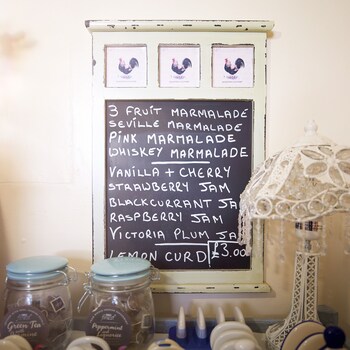 3 FRUIT MARMALADE
SEVILLE MARMALADE
PINK MARMALADE
WHISKEY MARMALADE
VANILLA + CHERRY
STRAWBERRY JAM
BLACKCURRANT JAM
RASPBERRY JAM
VICTORIA PLUM JA
LEMON CURD £3.00
Green Tea
Peppermint